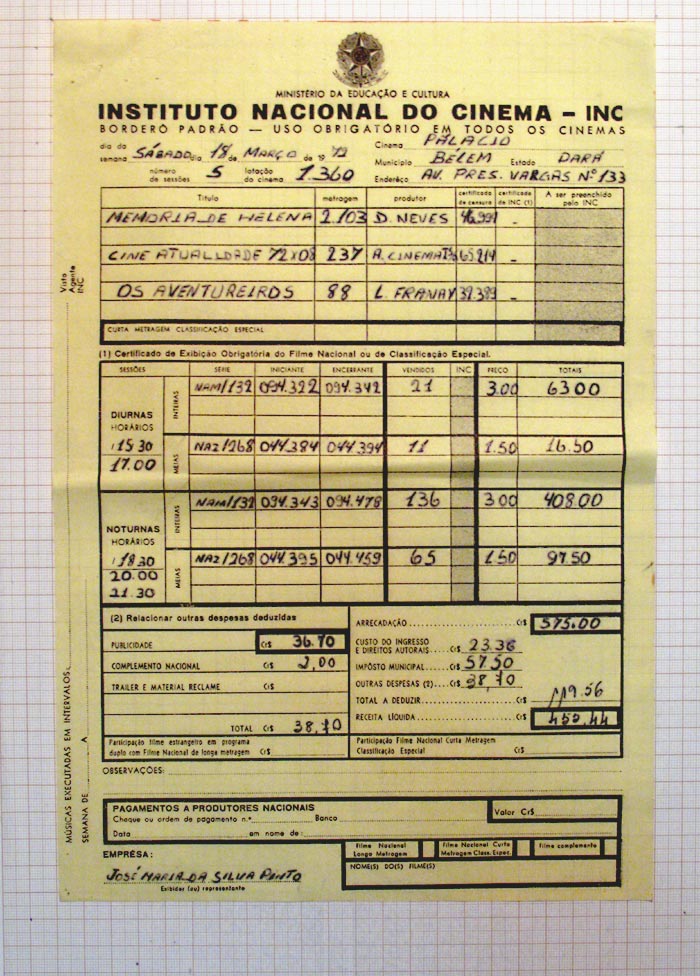 MINISTÉRIO DA EDUCAÇÃO E CULTURA
INSTITUTO NACIONAL DO CINEMA – INC
BORDERÔ PADRÃO — USO OBRIGATÓRIO EM TODOS OS CINEMAS
dia da semana SÁBADO dia 18 de MARÇO de 1972 Cinema PALÁCIO
Município BELÉM Estado PARÁ
número de sessões 5 lotação do cinema 1.360 Enderêço AV. PRES. VARGAS Nº 133
Título metragem produtor certificado de censura certificado de INC (1) A ser preenchido pelo INC
MEMORIA DE HELENA 2.103 D. NEVES 46.991 -
CINE ATUALIDADE 72X08 237 65.214 -
OS AVENTUREIROS 88 L. FRANAY 32.389 -
CURTA METRAGEM CLASSIFICAÇÃO ESPECIAL
(1) Certificado de Exibição Obrigatória do Filme Nacional ou de Classificação Especial.
SESSÕES SÉRIE INICIANTE ENCERRANTE VENDIDOS INC PREÇO TOTAIS
DIURNAS
HORÁRIOS
15 30
17.00
INTEIRAS NAM/132 094.322 094.342 21 3.00 63 00
MEIAS NAZ/268 044.384 044.394 11 1.50 16.50
NOTURNAS
HORÁRIOS
18 30
20.00
21.30
INTEIRAS NAM/132 094.343 094.478 136 3 00 408.00
MEIAS NAZ/268 044.395 044.459 65 1.50 97.50
(2) Relacionar outras despesas deduzidas
PUBLICIDADE Cr$ 36.70
COMPLEMENTO NACIONAL Cr$ 2,00
TRAILER E MATERIAL RECLAME Cr$
TOTAL Cr$ 38,70
Participação filme estrangeiro em programa
duplo com Filme Nacional de longa metragem Cr$
ARRECADAÇÃO Cr$ 575.00
CUSTO DO INGRESSO
E DIREITOS AUTORAIS Cr$ 23.36
IMPÔSTO MUNICIPAL Cr$ 57.50
OUTRAS DESPESAS (2) Cr$ 38,70
TOTAL A DEDUZIR 119.56
RECEITA LÍQUIDA Cr$ 455.44
Participação Filme Nacional Curta Metragem
Classificação Especial Cr$
OBSERVAÇÕES:
PAGAMENTOS A PRODUTORES NACIONAIS
Valor Cr$
Cheque ou ordem de pagamento n.º Banco
Data em nome de:
Filme Nacional Longa Metragem Filme Nacional Curta Metragem Class. Espec. Filme complemento
NOME(S) DO(S) FILME(S)
EMPRÊSA:
JOSÉ MARIA DA SILVA PINTO
Exibidor (ou) representante
Visto Agente INC
MÚSICAS EXECUTADAS EM INTERVALOS
SEMANA DE A